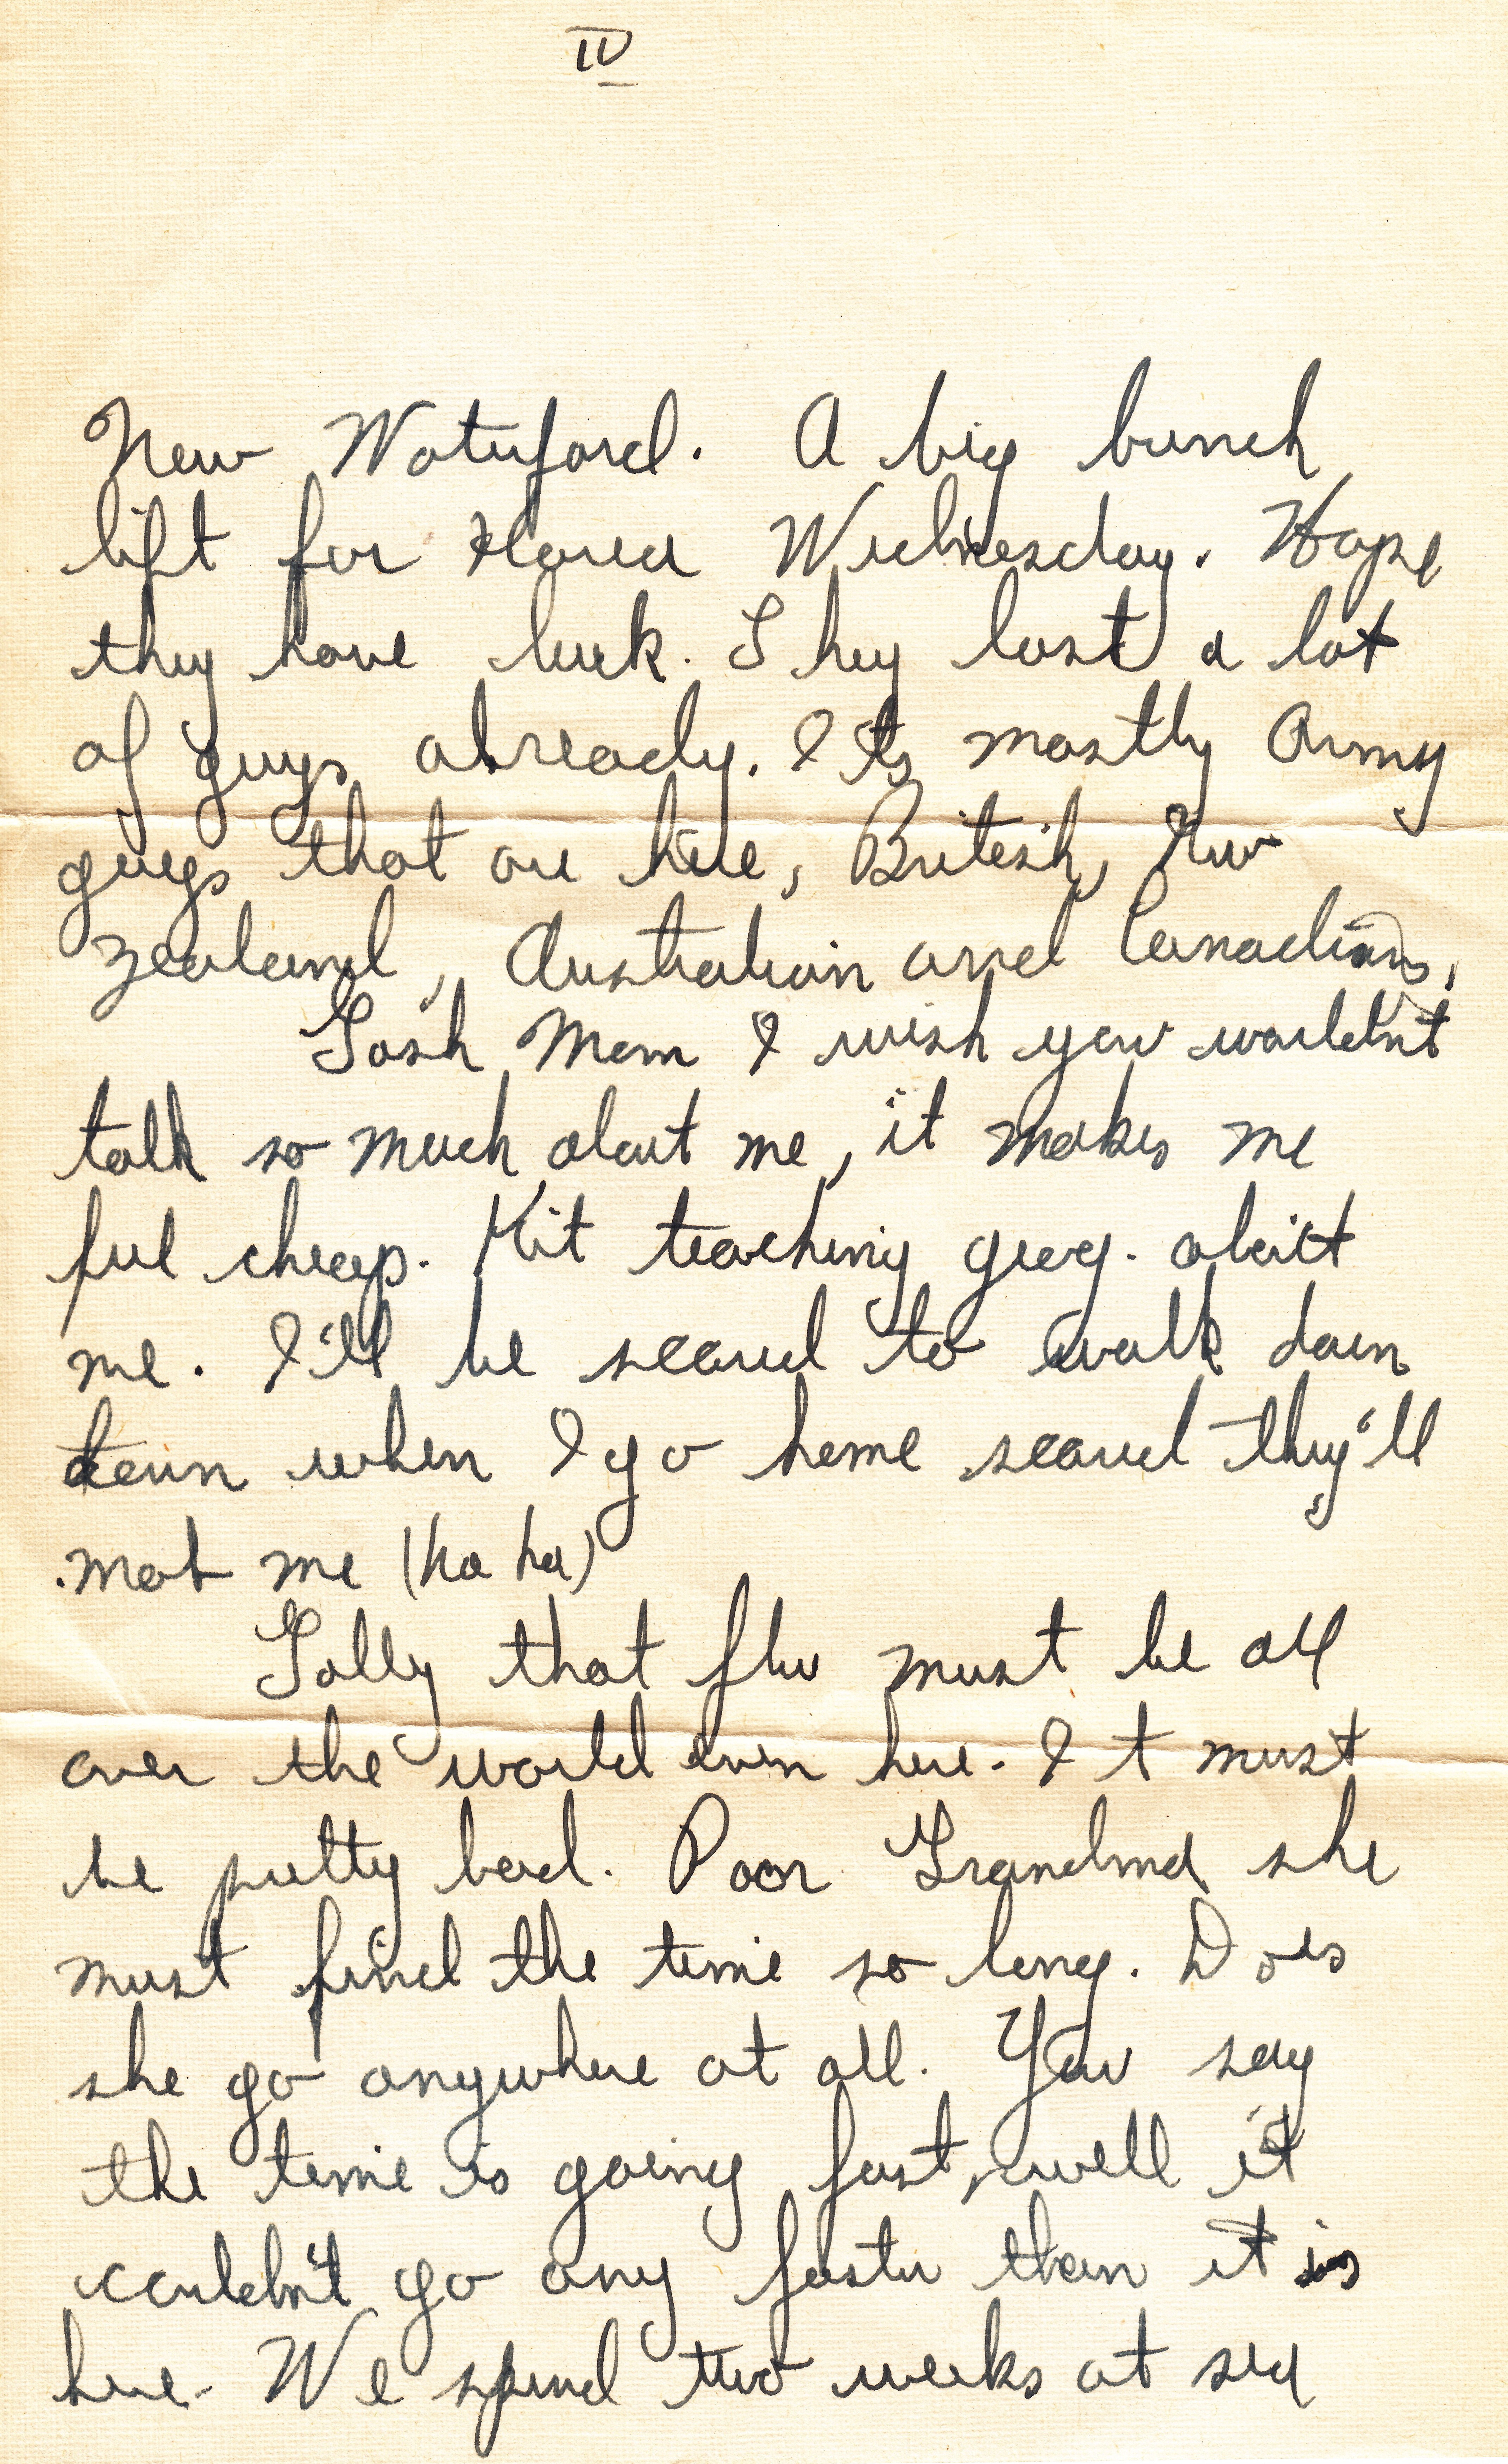 IV
New Waterford. A big bunch
left for Korea Wednesday. Hope
they have luck. They lost a lot
of guys already. Its mostly Army
guys that are here, British, New
Zealand, Australian and Canadians,
Gosh Mom I wish you wouldn't
talk so much about me, it makes me
feel cheap. Kit teaching geog. about
me. I'll be scared to walk down
town when I go home scared they'll
mob me (ha ha)
Golly that flu must be all
over the world even here. It must
be pretty bad. Poor Grandma she
must find the time so long. Does
she go anywhere at all. You say
the time is going fast, well it
couldn't go any faster than it is
here. We spend two weeks at sea